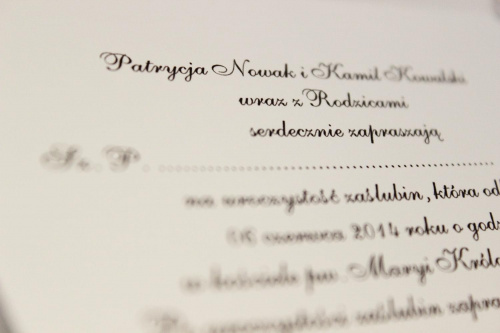 Patrycja Nowak i Kamil Kowalski
wraz z Rodzicami
serdecznie zapraszają
Sz. P. ........................................
na uroczystość zaślubin, która od
czerwca 2014 roku o godz
w kościele pw. Maryi Króla
uroczystości zaślubin zapra